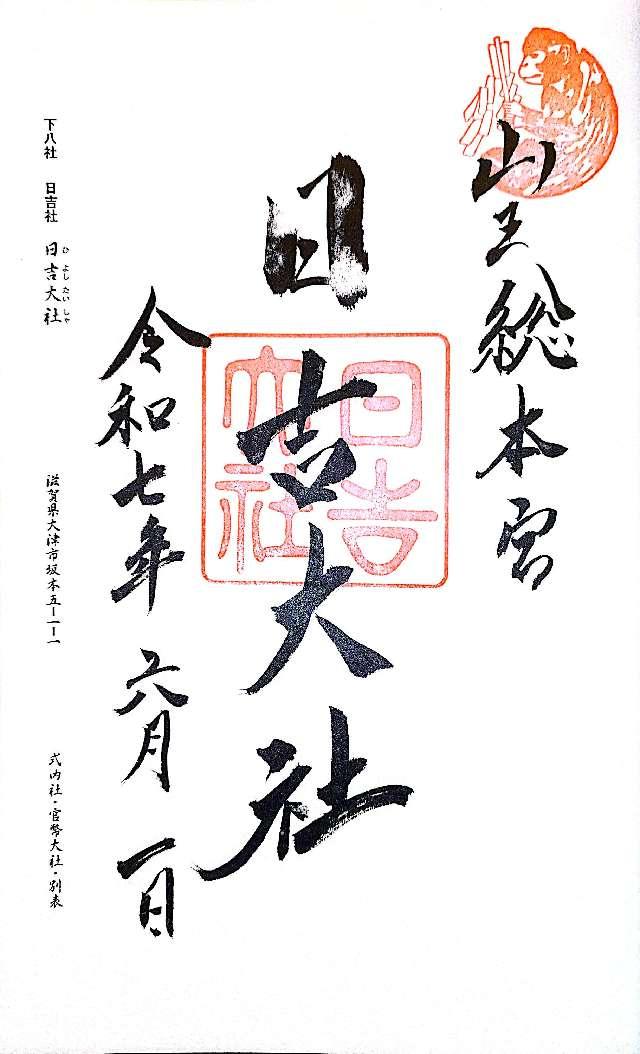 山王総本宮
日吉大社
日吉大社
令和七年 六月 一日
下八社 日吉社 日吉大社
ひよしたいしゃ
滋賀県大津市坂本五-一-一
式内社・官幣大社・別表